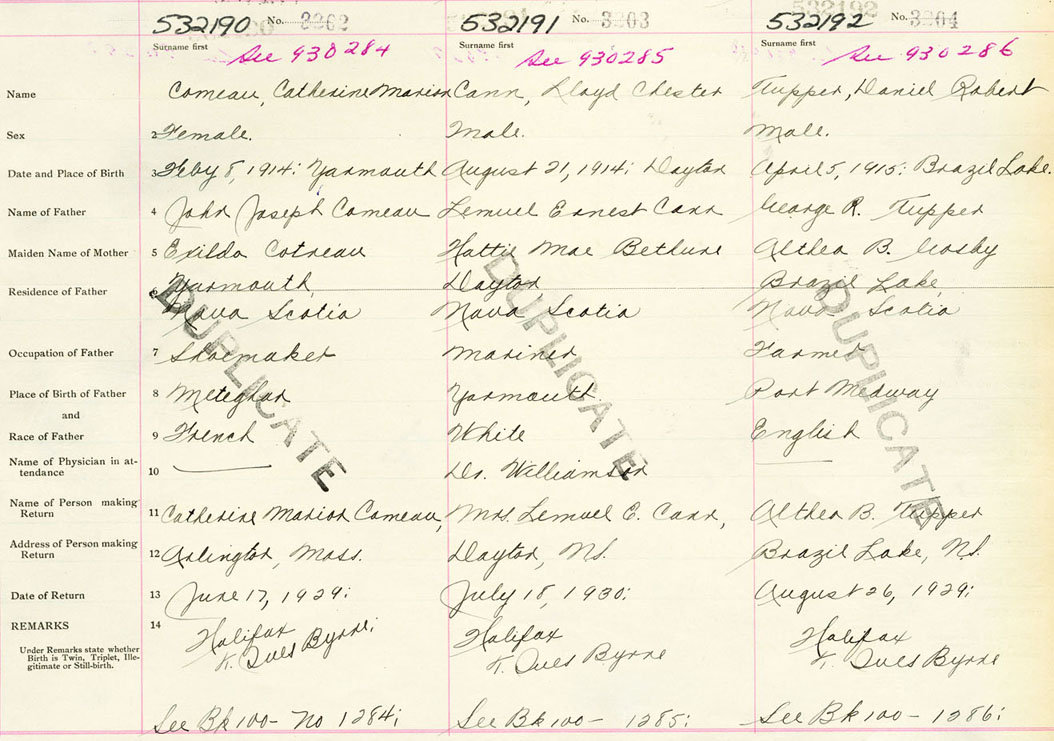 532190 No. 3202 532191 No. 3203 532192 No. 3204
Surname first Surname first Surname first
See 930284 See 930285 See 930286
Name Comeau, Catherine Marion Cann, Lloyd Chester Tupper, Daniel Robert
Sex 2 Female. Male. Male.
Date and Place of Birth 3 Feby 8, 1914; Yarmouth August 21, 1914; Dayton April 5, 1915; Brazil Lake.
Name of Father 4 John Joseph Comeau Lemuel Ernest Cann George R. Tupper
Maiden Name of Mother 5 Exilda Cotreau Hattie Mae Bethune Althea B. Crosby
Residence of Father 6 Yarmouth, Dayton Brazil Lake,
Nova Scotia Nova Scotia Nova Scotia
DUPLICATE DUPLICATE DUPLICATE
Occupation of Father 7 Shoemaker Mariner Farmer
Place of Birth of Father 8 Meteghan Yarmouth Port Medway
and
Race of Father 9 French White English
Name of Physician in at-
tendance 10 Dr. Williamson
Name of Person making
Return 11 Catherine Marion Comeau, Mrs. Lemuel E. Cann, Althea B. Tupper
Address of Person making
Return 12 Arlington, Mass. Dayton, N.S. Brazil Lake, N.S.
Date of Return 13 June 17, 1929; July 18, 1930; August 26, 1929;
REMARKS 14 Halifax Halifax Halifax
Under Remarks state whether
Birth is Twin, Triplet, Ille-
gitimate or Still-birth.
Byrne; Byrne Byrne
See Bk 100- No 1284; See Bk 100- 1285; See Bk 100- 1286;